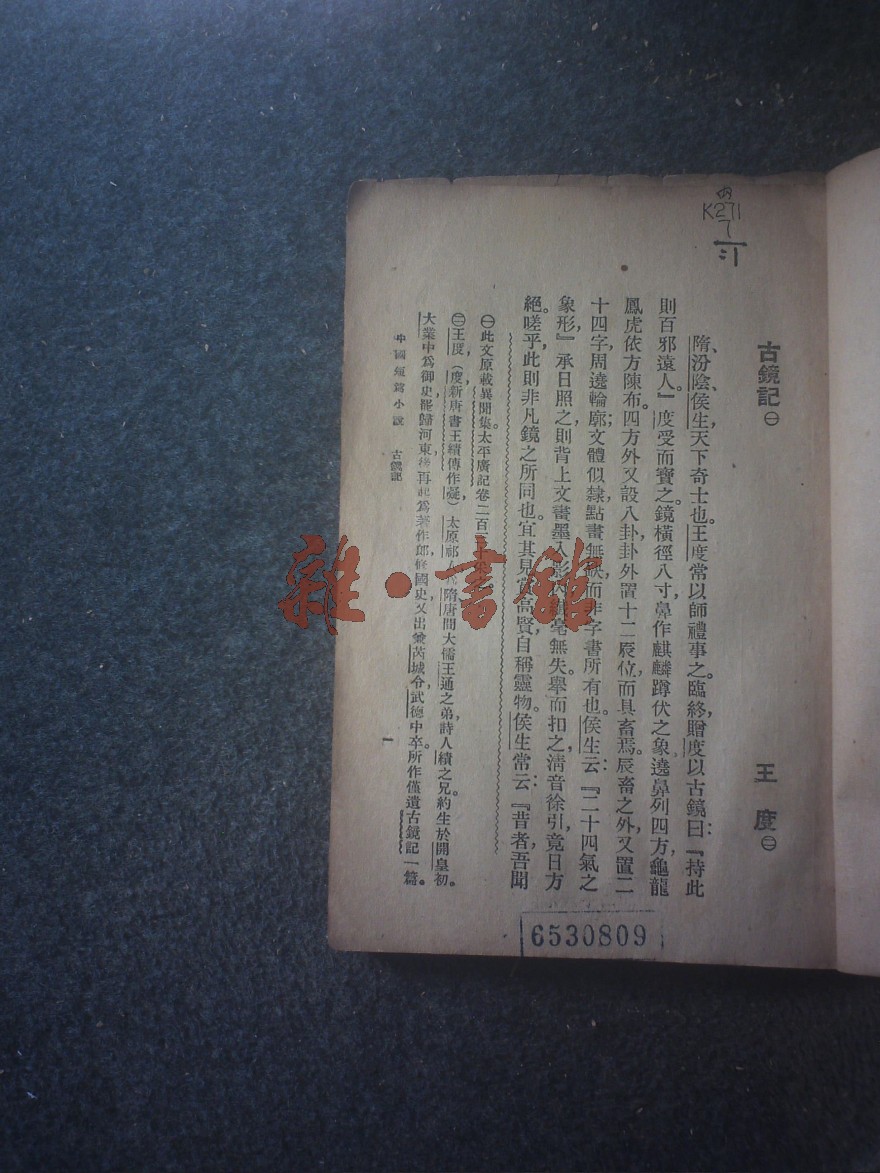 K271
7
古鏡記㊀
王度㊁
隋、汾陰、侯生，天下奇士也。王度常以師禮事之。臨終，贈度以古鏡曰：『持此
則百邪遠人。』度受而寶之。鏡橫徑八寸，鼻作麒麟蹲伏之象，遶鼻列四方，龜龍
鳳虎依方陳布。四方外又設八卦，卦外置十二辰位，而具畜焉。辰畜之外，又置二
十四字，周遶輪廓；文體似隸，點畫無缺，而非字書所有也。侯生云：『二十四氣之
象形。』承日照之，則背上文畫，墨入影內，纖毫無失。舉而扣之，清音徐引，竟日方
絕。嗟乎，此則非凡鏡之所同也。宜其見賞高賢，自稱靈物。侯生常云：『昔者吾聞
㊀此文原載異聞集。太平廣記卷二百三十
㊁王度，（度，新唐書王績傳作凝）太原祁人，隋唐間大儒王通之弟，詩人績之兄。約生於開皇初。
大業中爲御史，罷歸河東。後再起爲著作郎，修國史，又出兼芮城令，武德中卒。所作僅遺古鏡記一篇。
中國短篇小說 古鏡記
一
6530809
雜·書館